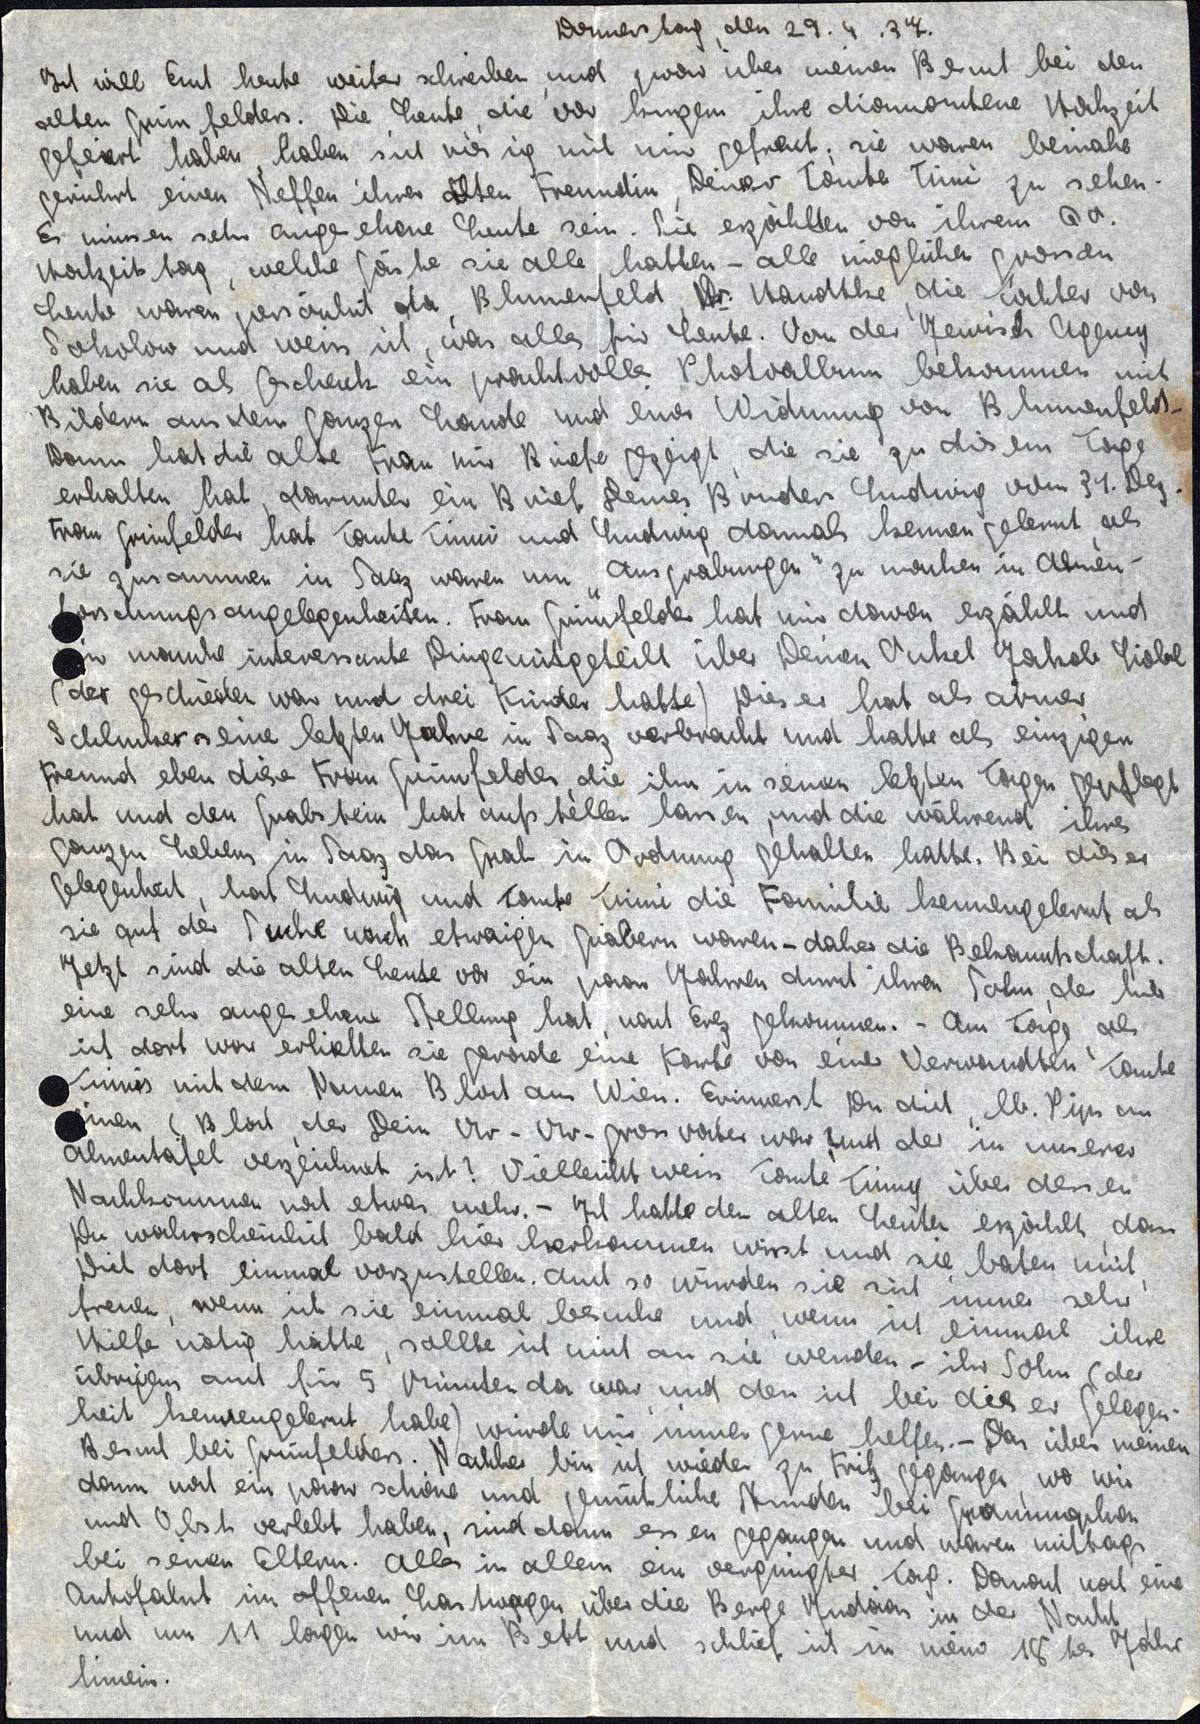 Donnerstag, den 29. 4. 37.
Ich will Euch heute weiter schreiben, und zwar über meinen Besuch bei den
alten Grünfelders. Die Leute, die vor kurzem ihre diamantene Hochzeit
gefeiert haben, haben sich riesig mit mir gefreut; sie waren beinahe
gerührt einen Neffen ihrer alten Freundin, Deiner Tante Timi zu sehen.
Es müssen sehr angesehene Leute sein. Sie erzählten von ihrem
Hochzeitstag, welche Gäste sie alle hatten – alle möglichen grossen
Leute waren persönlich da, Blumenfeld, Dr. Handtke, die Tochter von
Sokolow und weiss ich, was alles für Leute. Von der Jewish Agency
haben sie als Geschenk ein prachtvolles Photoalbum bekommen mit
Bildern aus dem ganzen Lande und einer Widmung von Blumenfeld.
Dann hat die alte Frau mir Briefe gezeigt, die sie zu disem Tage
erhalten hat, darunter ein Brief Deines Bruders Ludwig vom 31. Dez.
Frau Grünfelder hat Tante Timi und Ludwig damals kennen gelernt, als
sie zusammen in Saaz waren um „Ausgrabungen" zu machen in Ahnen-
forschungsangelegenheiten. Frau Grünfelder hat mir davon erzählt und
mir manche interessante Dinge mitgeteilt über Deinen Onkel Jakob Löbl
(der geschieden war und drei Kinder hatte) Dieser hat als armer
Schlucker seine letzten Jahre in Saaz verbracht und hatte als einzigen
Freund eben diese Frau Grünfelder, die ihn in seinen letzten Tagen gepflegt
hat und den Grabstein hat aufstellen lassen, und die während ihres
ganzen Lebens in Saaz das Grab in Ordnung gehalten hatte. Bei dieser
Gelegenheit, hat Ludwig und Tante Timi die Familie kennengelernt als
sie auf der Suche nach etwaigen Gräbern waren – daher die Bekanntschaft.
Jetzt sind die alten Leute vor ein paar Jahren durch ihren Sohn, der hier
eine sehr angesehene Stellung hat, nach Erez gekommen. – Am Tage, als
ich dort war erhielten sie gerade eine Karte von einer Verwandten Tante
Timis mit dem Namen Bloch aus Wien. Erinnerst Du dich, lb. Pips an
einen (Bloch, der Dein Ur-Ur-grossvater war, und der in unserer
Ahnentafel verzeichnet ist? Vielleicht weiss Tante Timy über dessen
Nachkommen noch etwas mehr. – Ich hatte den alten Leuten erzählt, dass
Du wahrscheinlich bald hier herkommen wirst und sie baten mich,
Dich dort einmal vorzustellen. Auch so würden sie sich immer sehr
freuen, wenn ich sie einmal besuche und, wenn ich einmal ihre
Hilfe nötig hätte, sollte ich mich an sie wenden – ihr Sohn (der
übrigens auch für 5 Minuten da war, und den ich bei dieser Gelegen-
heit kennengelernt habe) würde mir immer gerne helfen. – Das über meinen
Besuch bei Grünfelders. Nachher bin ich wieder zu Fritz gegangen, wo wir
dann noch ein paar schöne und gemütliche Stunden bei Grammophon
und Obst verlebt haben, sind dann essen gegangen und waren mittags
bei seinen Eltern. Alles in allem ein vergnügter Tag. Danach noch eine
Autofahrt im offenen Lastwagen über die Berge Judäas in der Nacht
und um 11 lagen wir im Bett und schlief ich in mein 18tes Jahr
hinein.